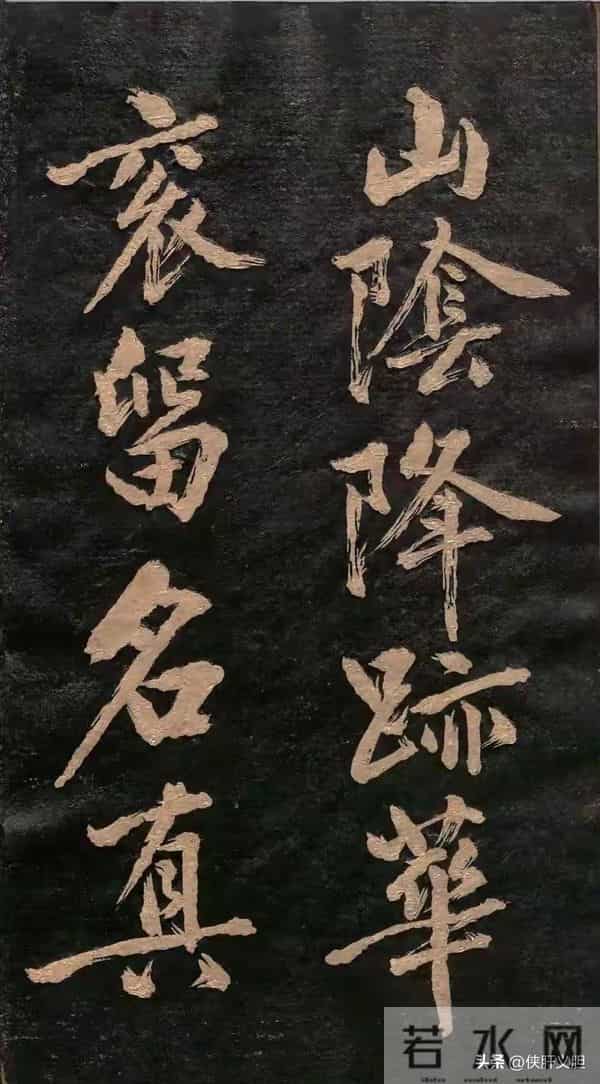 山陰降跡華
表留名真
若水网
头条 @侠肝义胆